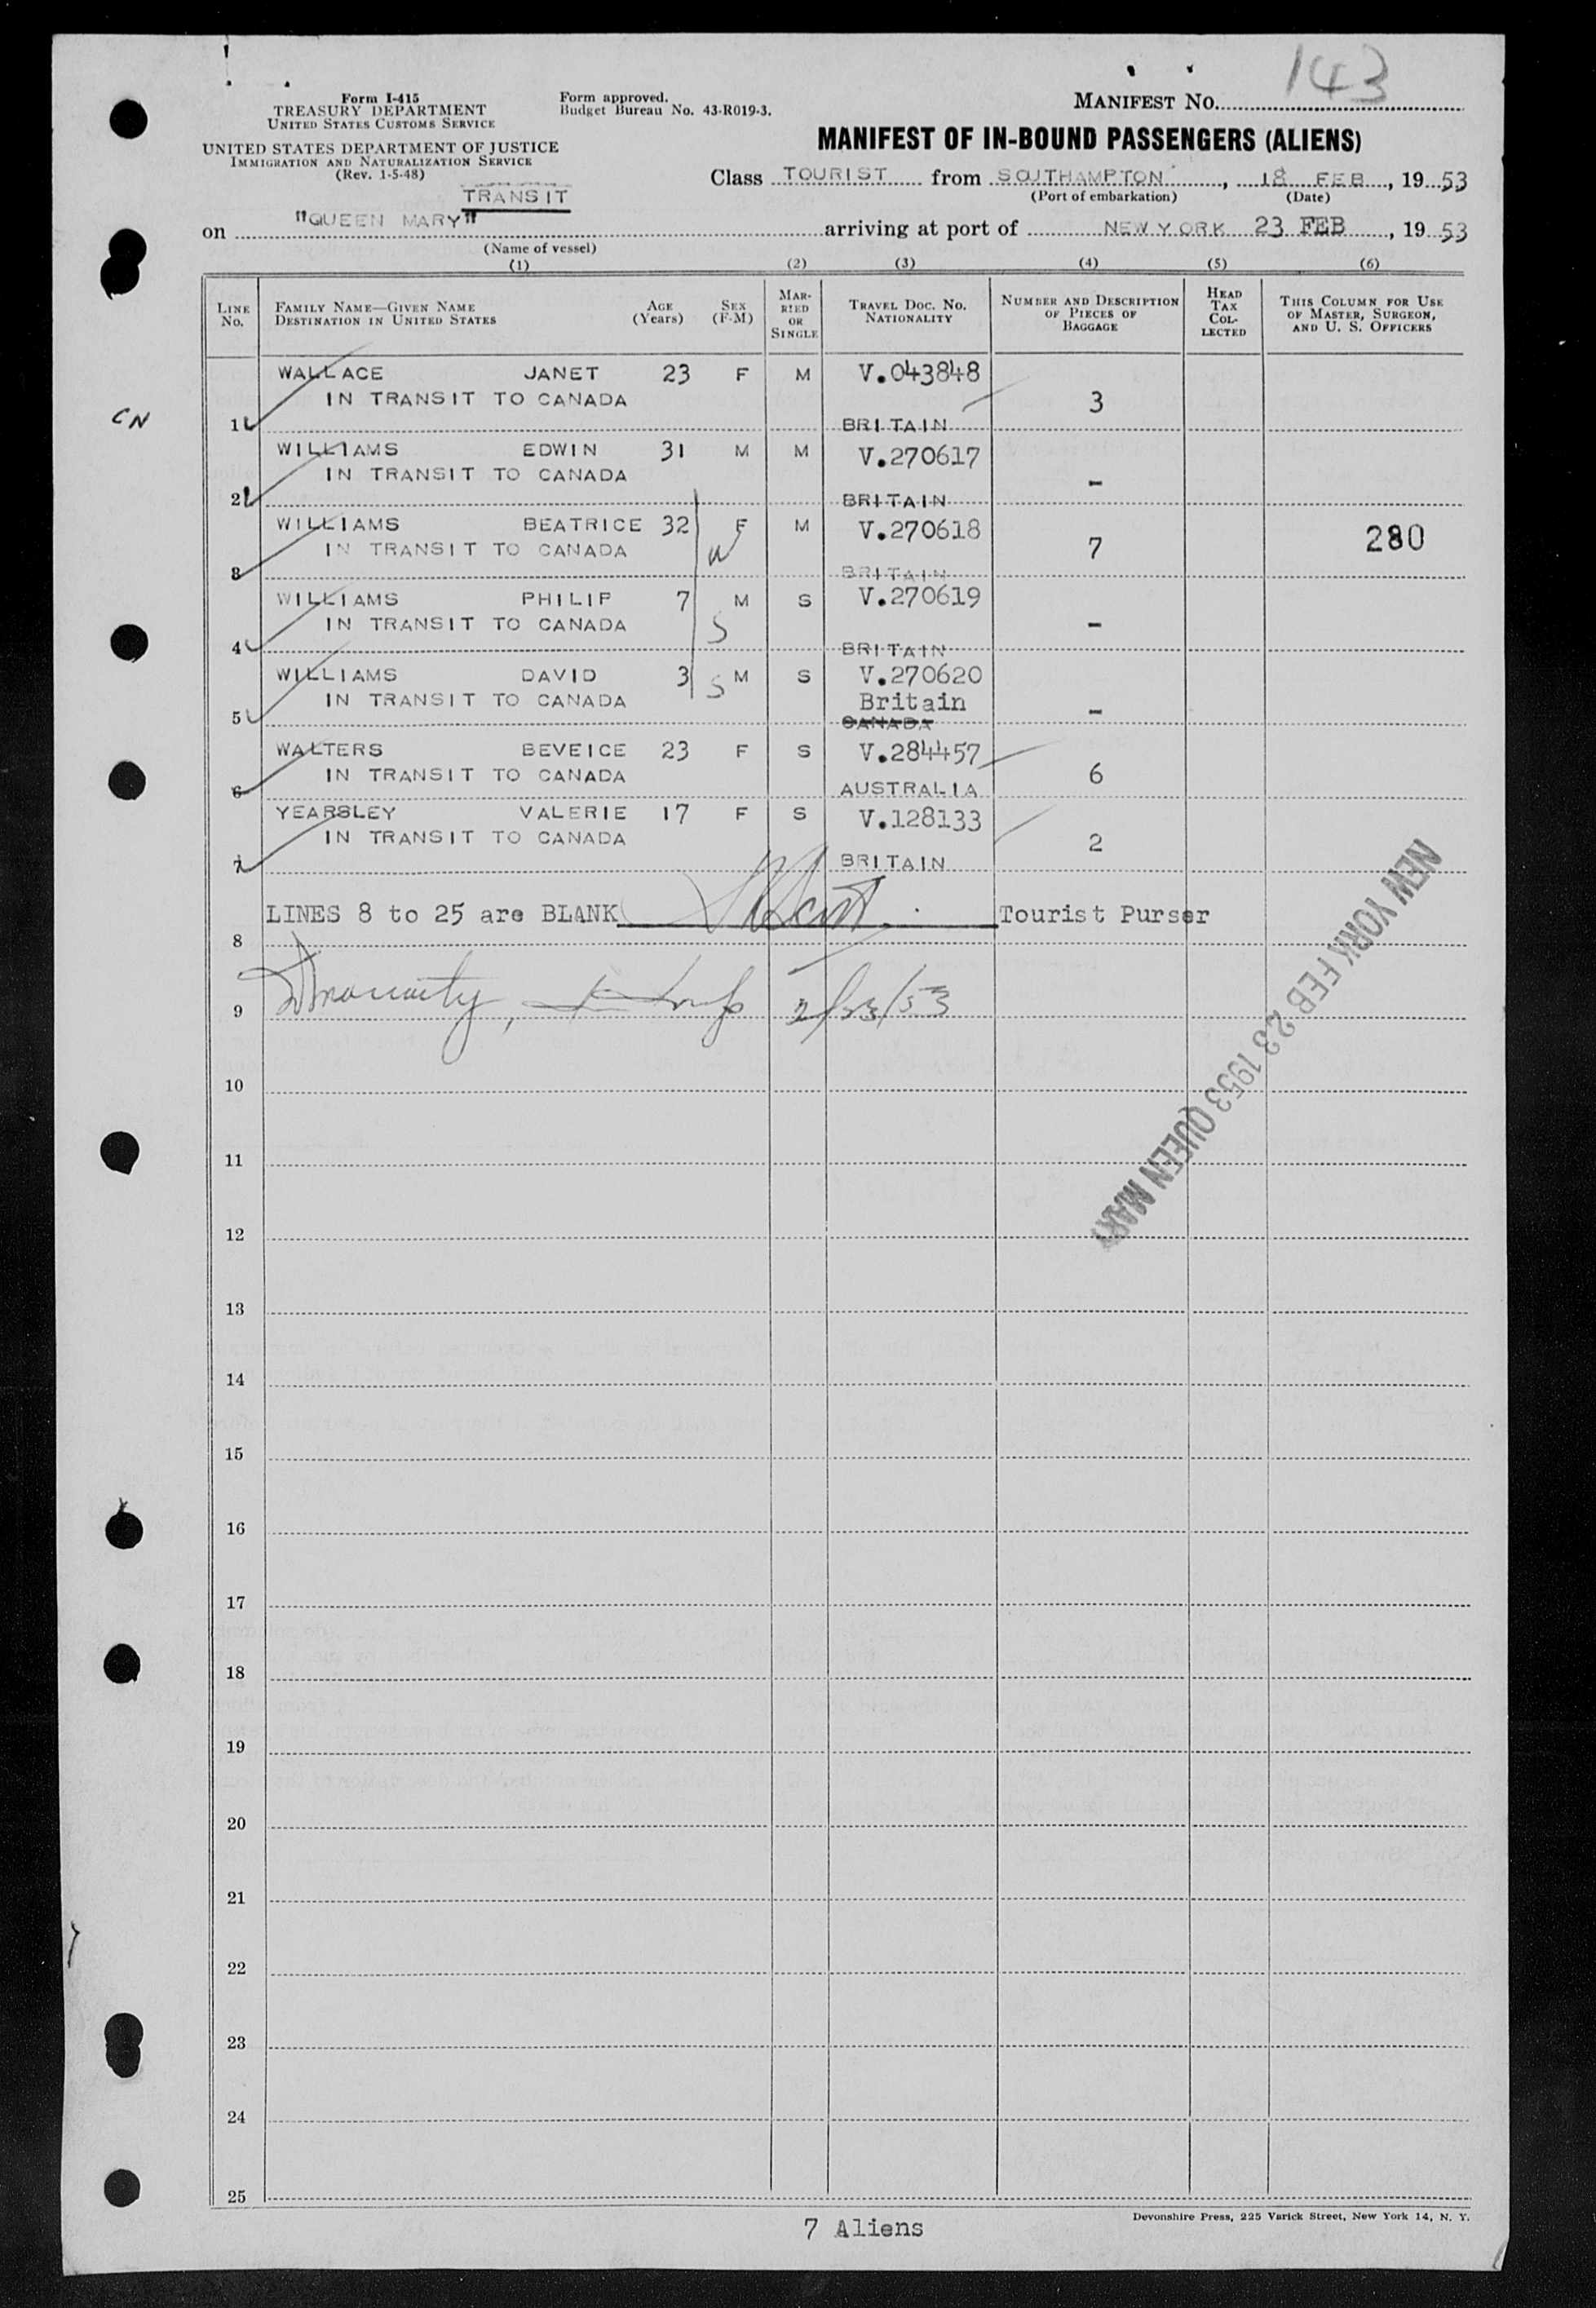 143
Form I-415
TREASURY DEPARTMENT
UNITED STATES CUSTOMS SERVICE
Form approved.
Budget Bureau No. 43-R019-3.
MANIFEST NO.
UNITED STATES DEPARTMENT OF JUSTICE
IMMIGRATION AND NATURALIZATION SERVICE
(Rev. 1-5-48)
MANIFEST OF IN-BOUND PASSENGERS (ALIENS)
Class TOURIST from SOUTHAMPTON, 18 FEB, 19 53
(Port of embarkation) (Date)
TRANSIT
on "QUEEN MARY" arriving at port of NEW YORK 23 FEB, 19 53
(Name of vessel)
(1) (2) (3) (4) (5) (6)
LINE NO. FAMILY NAME—GIVEN NAME DESTINATION IN UNITED STATES AGE (Years) SEX (F-M) MARRIED OR SINGLE TRAVEL DOC. NO. NATIONALITY NUMBER AND DESCRIPTION OF PIECES OF BAGGAGE HEAD TAX COLLECTED THIS COLUMN FOR USE OF MASTER, SURGEON, AND U. S. OFFICERS
WALLACE JANET 23 F M V.043848
IN TRANSIT TO CANADA 3
CN 1 BRITAIN
WILLIAMS EDWIN 31 M M V.270617
IN TRANSIT TO CANADA -
2 BRITAIN
WILLIAMS BEATRICE 32 F M V.270618 280
IN TRANSIT TO CANADA W 7
3 BRITAIN
WILLIAMS PHILIP 7 M S V.270619
IN TRANSIT TO CANADA S -
4 BRITAIN
WILLIAMS DAVID 3 S M S V.270620
IN TRANSIT TO CANADA Britain -
5 CANADA
WALTERS BEVEICE 23 F S V.284457
IN TRANSIT TO CANADA 6
6 AUSTRALIA
YEARSLEY VALERIE 17 F S V.128133
IN TRANSIT TO CANADA 2
7 BRITAIN
LINES 8 to 25 are BLANK Tourist Purser
8
9 2/23/53
NEW YORK FEB 23 1953 QUEEN MARY
10
11
12
13
14
15
16
17
18
19
20
21
22
23
24
25
7 Aliens
Devonshire Press, 225 Varick Street, New York 14, N. Y.